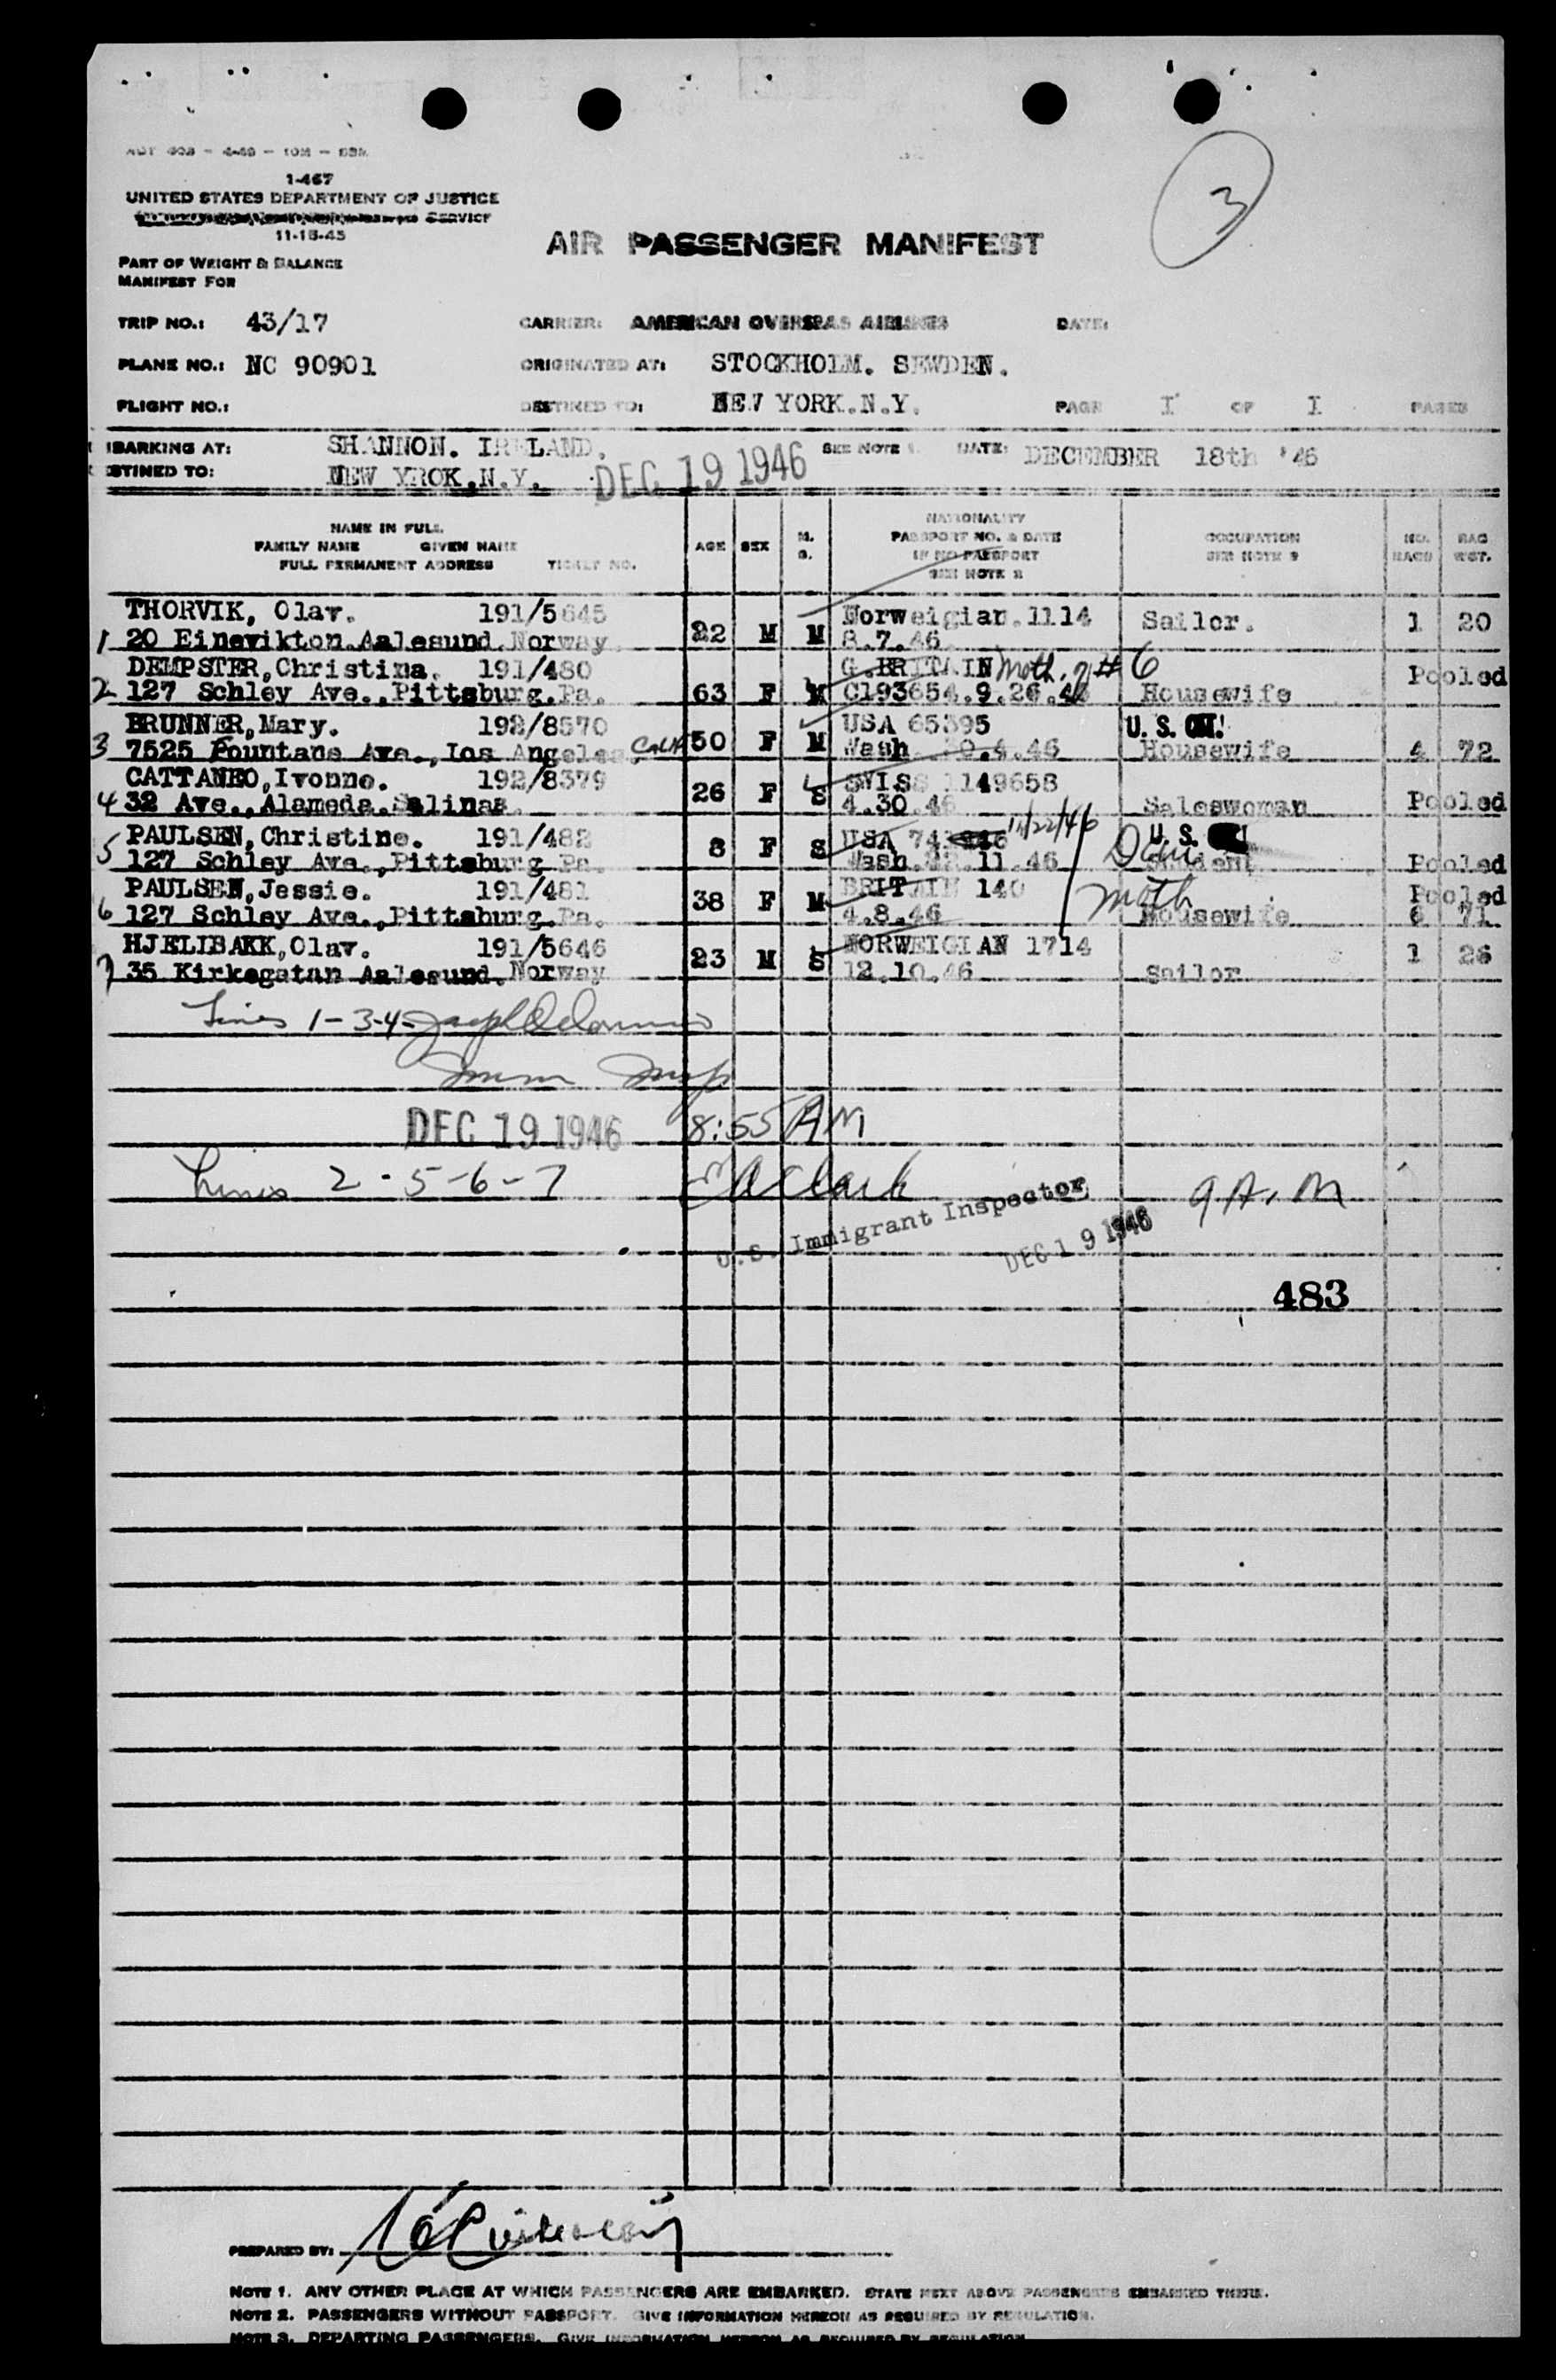 3
1-467
UNITED STATES DEPARTMENT OF JUSTICE
SERVICE
11-15-45
AIR PASSENGER MANIFEST
PART OF WEIGHT & BALANCE
MANIFEST FOR
TRIP NO.: 43/17 CARRIER: AMERICAN OVERSEAS AIRLINES DATE:
PLANE NO.: NC 90901 ORIGINATED AT: STOCKHOLM. SEWDEN.
FLIGHT NO.: DESTINED TO: NEW YORK.N.Y. PAGE I OF I PAGES
MBARKING AT: SHANNON. IRELAND. SEE NOTE 1. DATE: DECEMBER 18th '46
STINED TO: NEW YROK.N.Y. DEC 19 1946
NAME IN FULL
FAMILY NAME GIVEN NAME
FULL PERMANENT ADDRESS TICKET NO.
AGE SEX M. S.
NATIONALITY
PASSPORT NO. & DATE
IF NO PASSPORT
SEE NOTE 2
OCCUPATION
SEE NOTE 3
NO. BAGS BAG WGT.
THORVIK, Olav. 191/5645 Norweigian.1114
1 20 Einevikton.Aalesund.Norway. 22 M M 8.7.46 Sailor. 1 20
DEMPSTER,Christina. 191/480 G.BRITAIN Moth. of #6
2 127 Schley Ave.,Pittsburg.Pa. 63 F M C193654.9.26.46 Housewife Pooled
BRUNNER,Mary. 192/8570 USA 65395 U. S. CIT!
3 7525 Fountane Ave., Los Angeles. Calif 50 F M Wash. 4.46 Housewife 4 72
CATTANEO,Ivonne. 192/8379 SWISS 1149658
4 32 Ave.,Alameda.Salinas. 26 F S 4.30.46 Saleswoman Pooled
PAULSEN,Christine. 191/482 USA 11/22/46 U. S.
5 127 Schley Ave.,Pittsburg Pa. 8 F S Wash. 11.46 Dau Student Pooled
PAULSEN,Jessie. 191/481 BRITAIN 140 Moth Pooled
6 127 Schley Ave.,Pittsburg.Pa. 38 F M 4.8.46 Housewife 6 71
HJELIBAKK,Olav. 191/5646 NORWEIGIAN 1714
7 35 Kirkegatan Aalesund.Norway 23 M S 12.10.46 Sailor 1 26
Lines 1-3-4-
Imm Insp
DEC 19 1946 8:55 AM
Lines 2-5-6-7 Clark 9 A. M
U.S. Immigrant Inspector
DEC 19 1946
483
PREPARED BY:
NOTE 1. ANY OTHER PLACE AT WHICH PASSENGERS ARE EMBARKED. STATE NEXT ABOVE PASSENGERS EMBARKED THERE.
NOTE 2. PASSENGERS WITHOUT PASSPORT. GIVE INFORMATION HEREON AS REQUIRED BY REGULATION.
NOTE 3. DEPARTING PASSENGERS. GIVE INFORMATION HEREON AS REQUIRED BY REGULATION